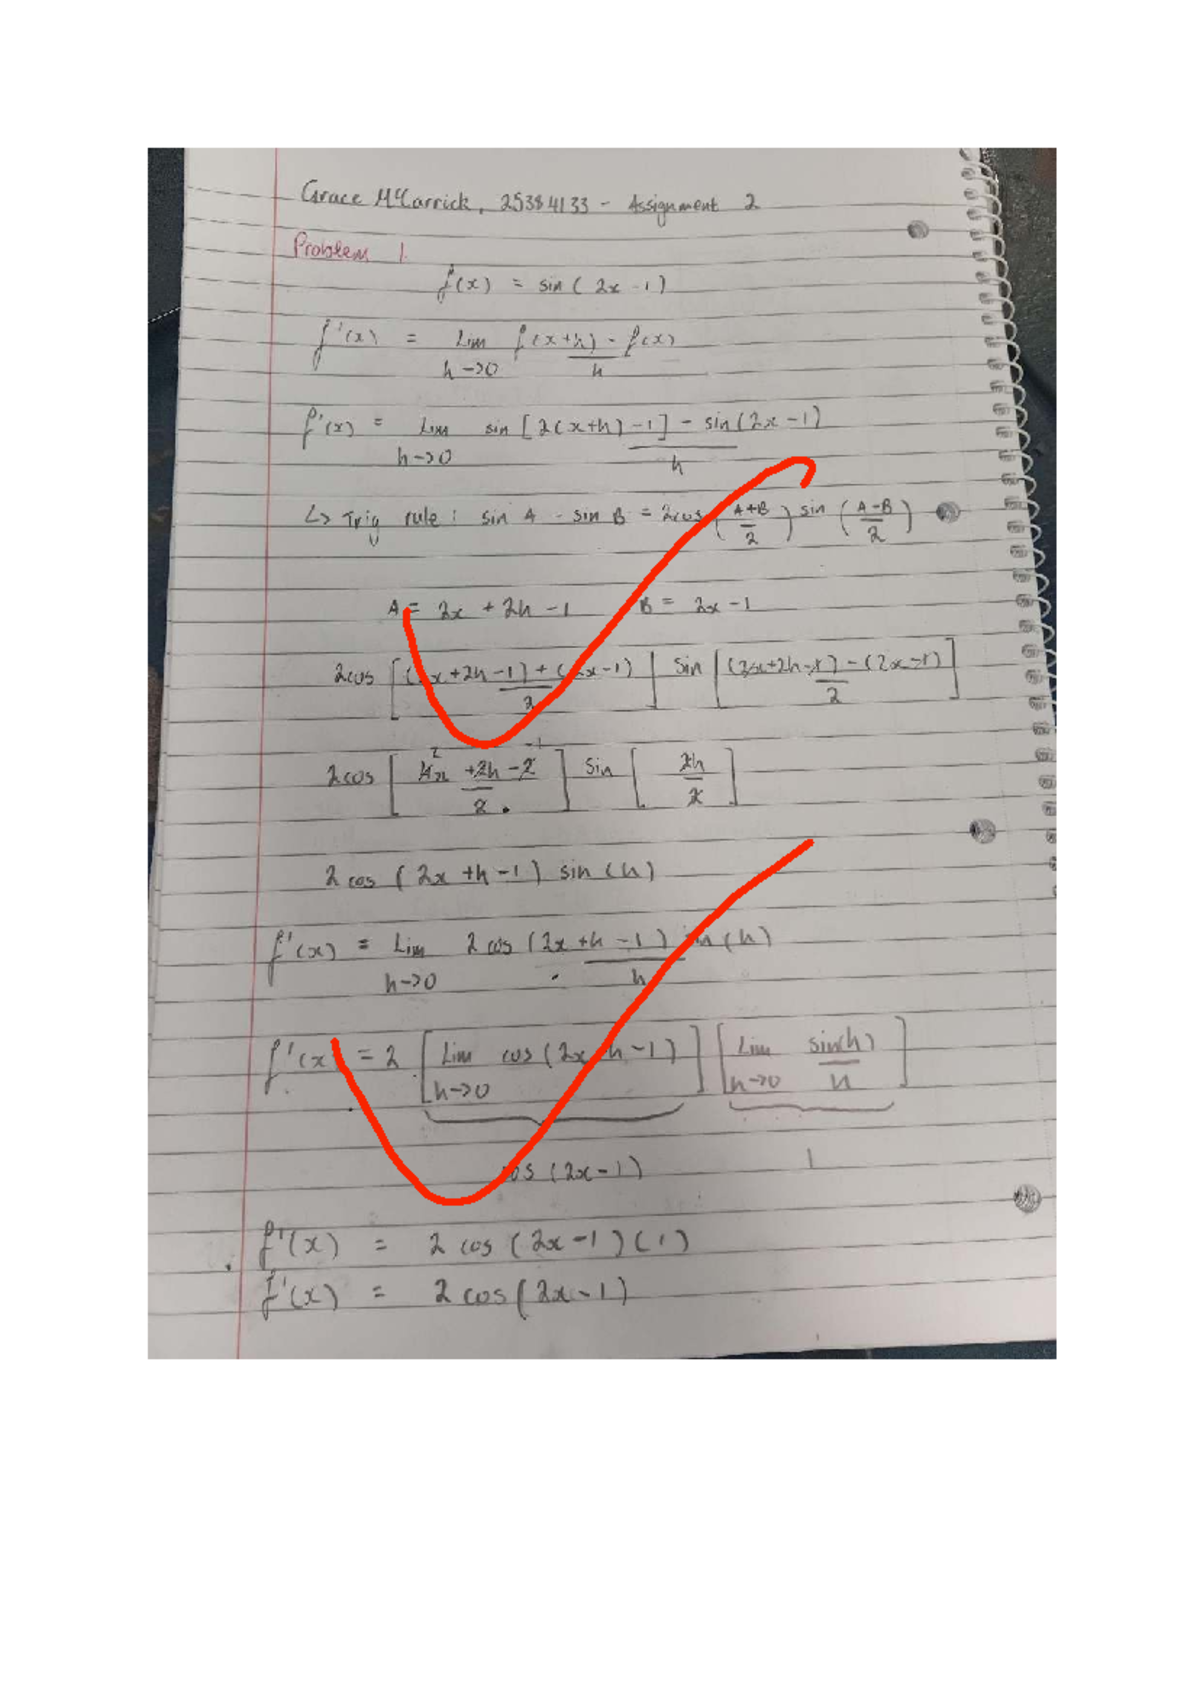 Grace McCarrick, 25384133 - Assignment 2
Problem 1.
f(x) = sin(2x-1)
f'(x) = Lim f(x+h) - f(x)
h->0 h
f'(x) = Lim sin[2(x+h)-1] - sin(2x-1)
h->0 h
↳ Trig rule: sin A - sin B = 2cos (A+B/2) sin (A-B/2)
A = 2x + 2h - 1 B = 2x - 1
2cos [(2x+2h-1)+(2x-1)/2] sin [(2x+2h-1)-(2x-1)/2]
2 -1
2cos [4x+2h-2/2] sin [2h/2]
2 cos (2x+h-1) sin(h)
f'(x) = Lim 2 cos (2x+h-1) sin(h)
h->0 h
f'(x) = 2 [Lim cos(2x+h-1)] [Lim sin(h)/h]
h->0 h->0
cos(2x-1) 1
f'(x) = 2 cos (2x-1)(1)
f'(x) = 2 cos(2x-1)